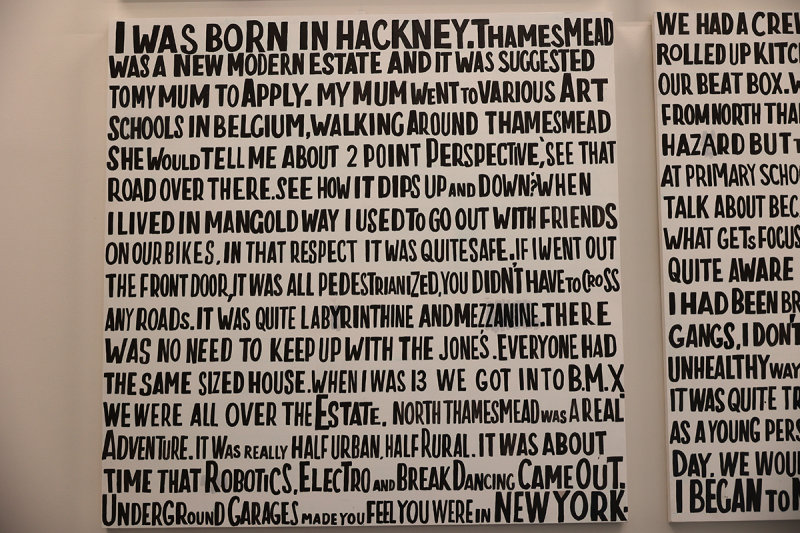 I WAS BORN IN HACKNEY. THAMESMEAD
WAS A NEW MODERN ESTATE AND IT WAS SUGGESTED
TO MY MUM TO APPLY. MY MUM WENT TO VARIOUS ART
SCHOOLS IN BELGIUM, WALKING AROUND THAMESMEAD
SHE WOULD TELL ME ABOUT 2 POINT PERSPECTIVE, 'SEE THAT
ROAD OVER THERE. SEE HOW IT DIPS UP AND DOWN?' WHEN
I LIVED IN MANGOLD WAY I USED TO GO OUT WITH FRIENDS
ON OUR BIKES, IN THAT RESPECT IT WAS QUITE SAFE. IF I WENT OUT
THE FRONT DOOR, IT WAS ALL PEDESTRIANIZED, YOU DIDN'T HAVE TO CROSS
ANY ROADS. IT WAS QUITE LABYRINTHINE AND MEZZANINE. THERE
WAS NO NEED TO KEEP UP WITH THE JONE'S. EVERYONE HAD
THE SAME SIZED HOUSE. WHEN I WAS 13 WE GOT INTO B.M.X
WE WERE ALL OVER THE ESTATE. NORTH THAMESMEAD WAS A REAL
ADVENTURE. IT WAS REALLY HALF URBAN, HALF RURAL. IT WAS ABOUT
TIME THAT ROBOTICS, ELECTRO AND BREAK DANCING CAME OUT.
UNDERGROUND GARAGES MADE YOU FEEL YOU WERE IN NEW YORK.
WE HAD A CREW
ROLLED UP KITCH
OUR BEAT BOX. W
FROM NORTH THA
HAZARD BUT
AT PRIMARY SCHO
TALK ABOUT BEC
WHAT GETS FOCUS
QUITE AWARE
I HAD BEEN BR
GANGS, I DON'T
UNHEALTHY WAY
IT WAS QUITE TR
AS A YOUNG PERS
DAY. WE WOU
I BEGAN TO